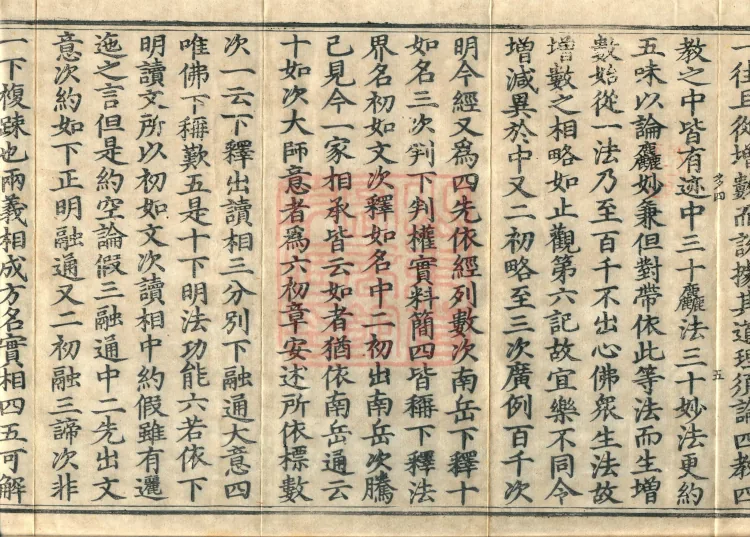 一往且從增數而說據其道理須論四教四
教之中皆有迹中三十麤法三十妙法更約
五味以論麤妙兼但對帶依此等法而生增
數始從一法乃至百千不出心佛眾生法故
增數之相略如止觀第六記故宜樂不同令
增減異於中又二初略至三次廣例百千次
明今經又為四先依經列數次南岳下釋十
如名三次判下判權實料簡四皆稱下釋法
界名初如文次釋如名中二初出南岳次騰
己見今一家相承皆云如者猶依南岳通云
十如次大師意者為六初章安述所依標數
次一云下釋出讀相三分別下融通大意四
唯佛下稱歎五是十下明法功能六若依下
明讀文所以初如文次讀相中約假雖有邐
迤之言但是約空論假三融通中二先出文
意次約如下正明融通又二初融三諦次非
一下複疎也兩義相成方名實相四五可解